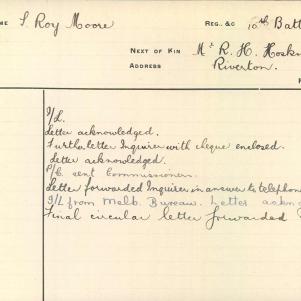 ME S Roy Moore REG., &C 10th Batt
NEXT OF KIN Mr R. H. Hosk
ADDRESS Riverton.
I/L.
Letter acknowledged.
Further letter Inquirer with cheque enclosed.
Letter acknowledged.
P/C. sent Commissioners.
Letter forwarded Inquirer in answer to telephon
I/L from Melb. Bureau. Letter ackno
Final circular letter forwarded